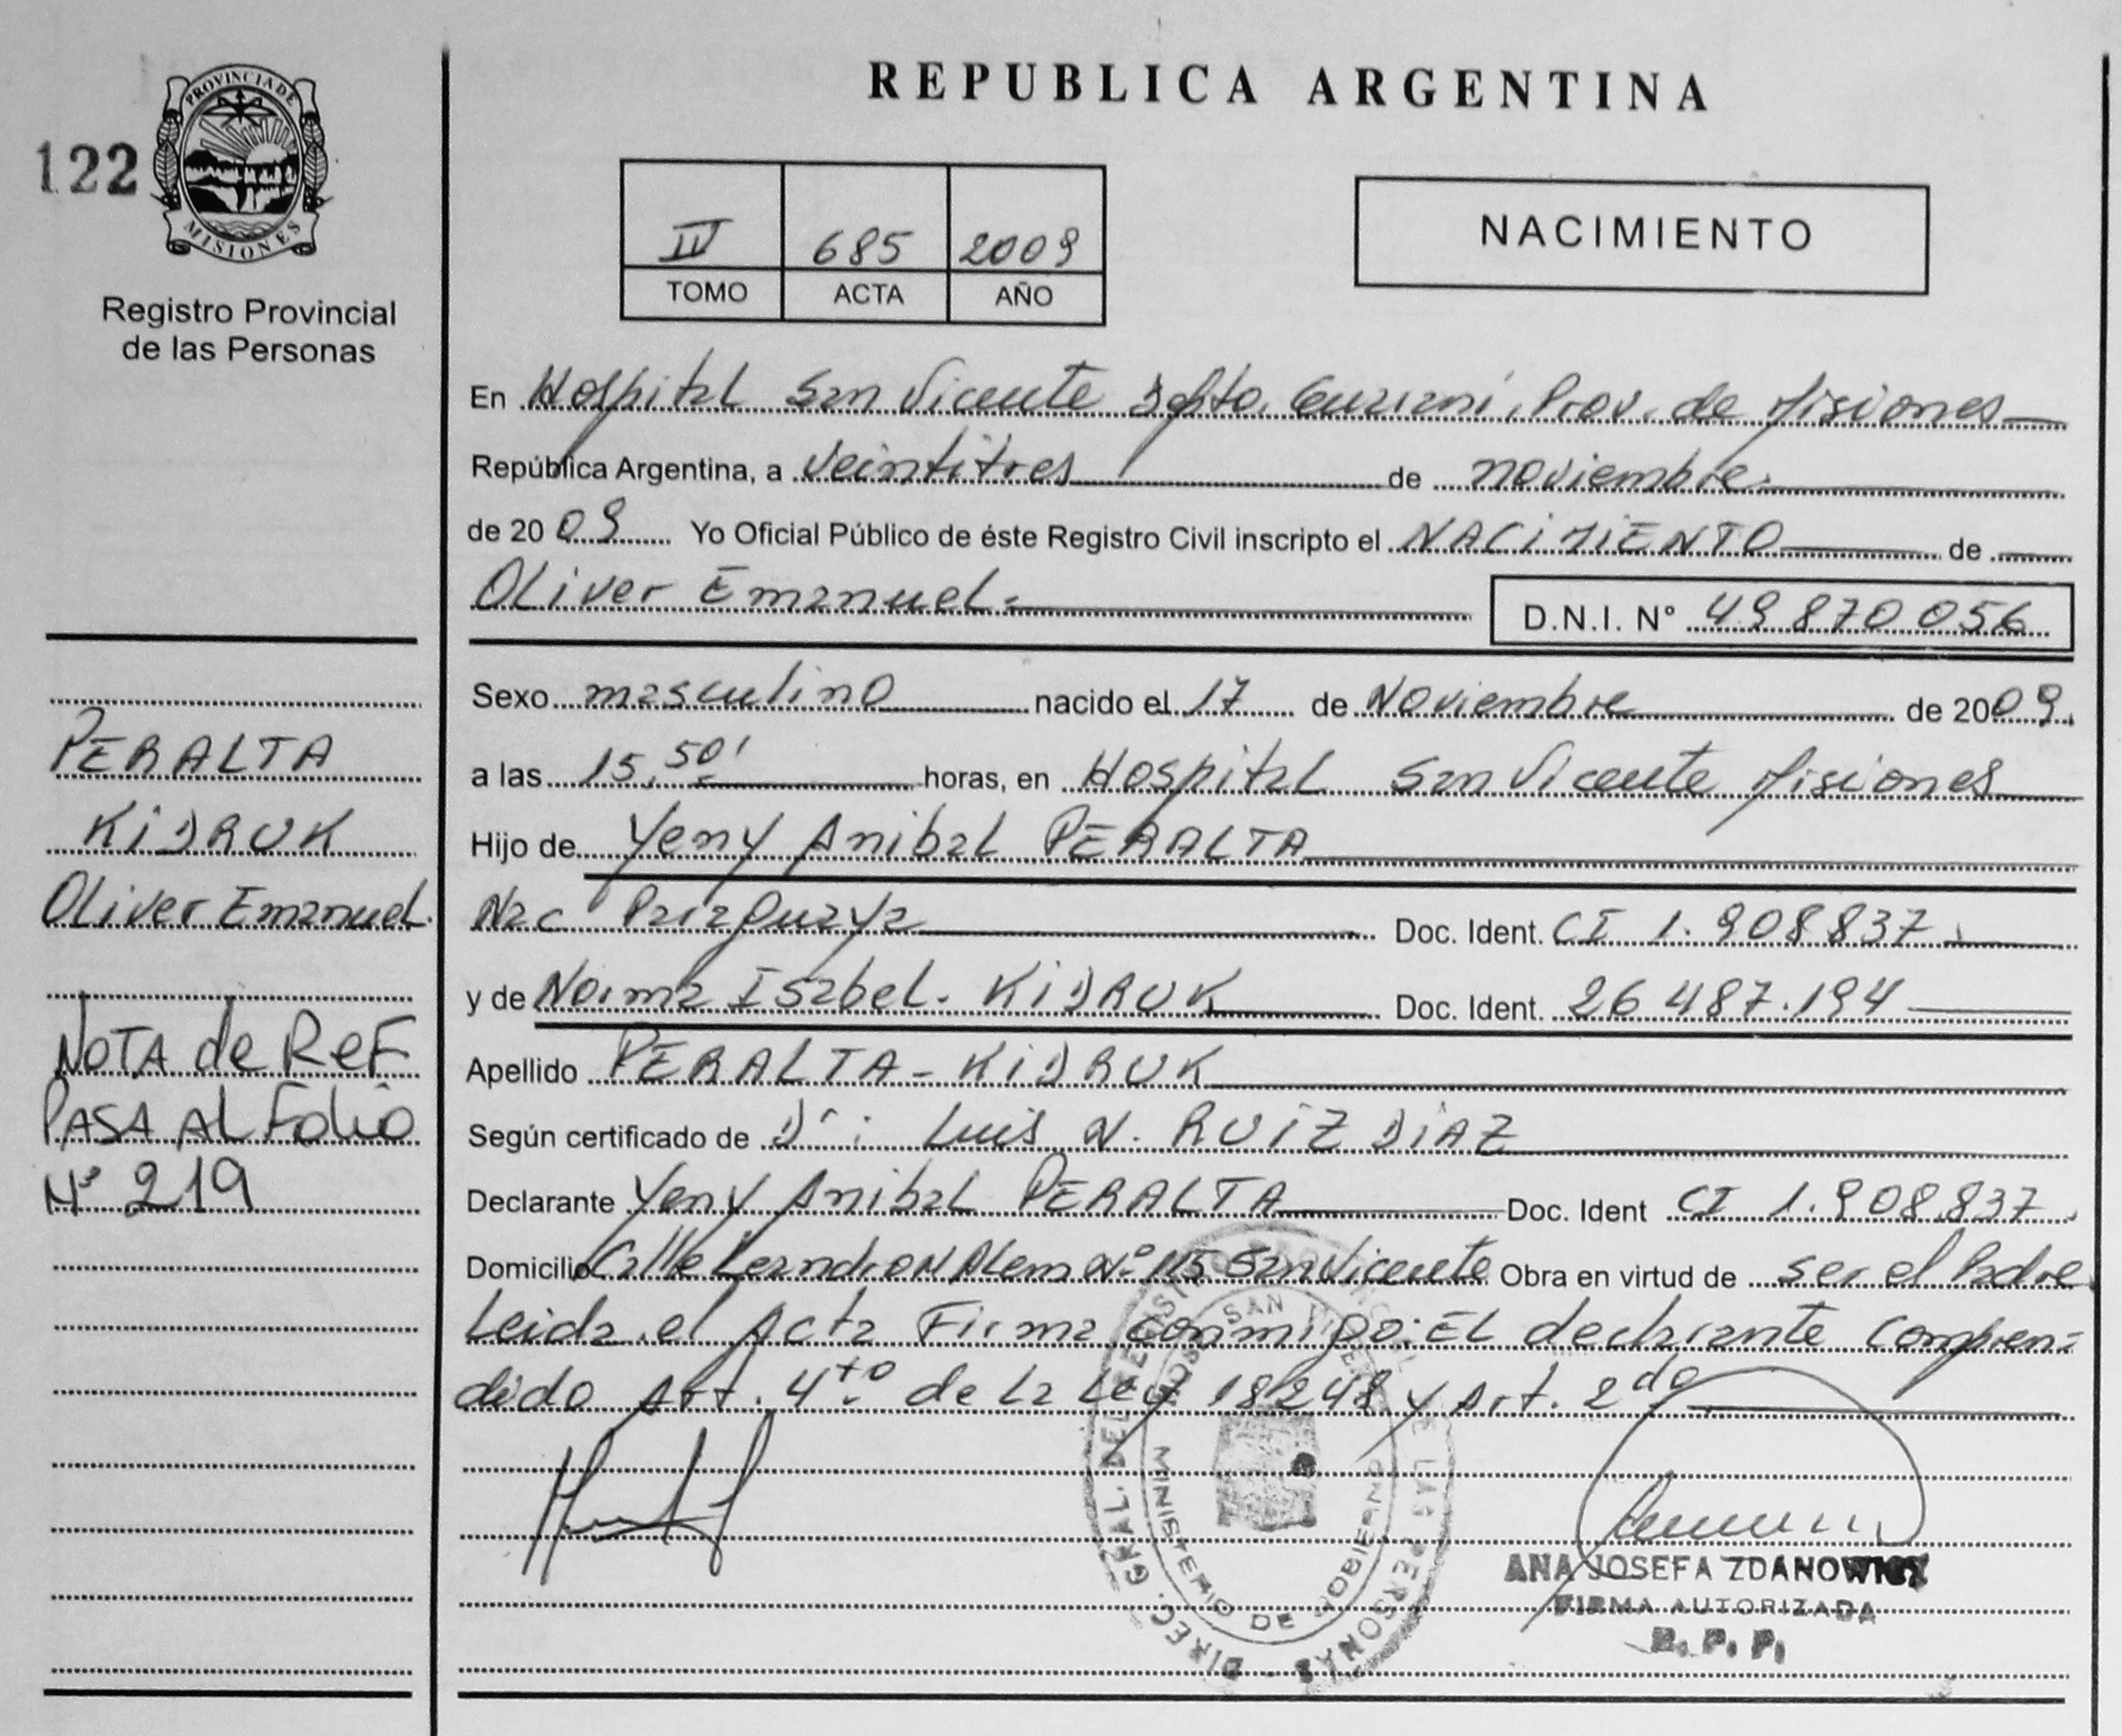 122
PROVINCIA DE
MISIONES
Registro Provincial
de las Personas
PERALTA
KIDRUK
Oliver Emanuel.
NOTA de REF
PASA AL Folio
Nº 219
REPUBLICA ARGENTINA
685 2009
TOMO ACTA AÑO
NACIMIENTO
En Hospital San Vicente Dpto. Guaraní, Prov. de Misiones
República Argentina, a veintitres de noviembre
de 2009 Yo Oficial Público de éste Registro Civil inscripto el NACIMIENTO de
Oliver Emanuel.
D.N.I. Nº 49.870.056
Sexo masculino nacido el 17 de Noviembre de 2009.
a las 15,50' horas, en Hospital San Vicente Misiones
Hijo de Yeny Anibal PERALTA
Nac Paraguaya Doc. Ident. CI 1.908837.
y de Norma Isabel. KIDRUK Doc. Ident. 26 487.194
Apellido PERALTA - KIDRUK
Según certificado de Dr: Luis N. RUIZ DIAZ
Declarante Yeny Anibal PERALTA Doc. Ident CI 1.908.837.
Domicilio Calle Leandro N Alem Nº 115 San Vicente Obra en virtud de ser el Padre
Leida el Acta Firma conmigo: El declarante compren=
dido Art. 4to de la Ley 18248 y Art. 2do
DIREC. GRAL. DEL REGISTRO PROVINCIAL DE LAS PERSONAS
SAN VICENTE
MINISTERIO DE GOBIERNO
ANA JOSEFA ZDANOWICZ
FIRMA AUTORIZADA
R. P. P.